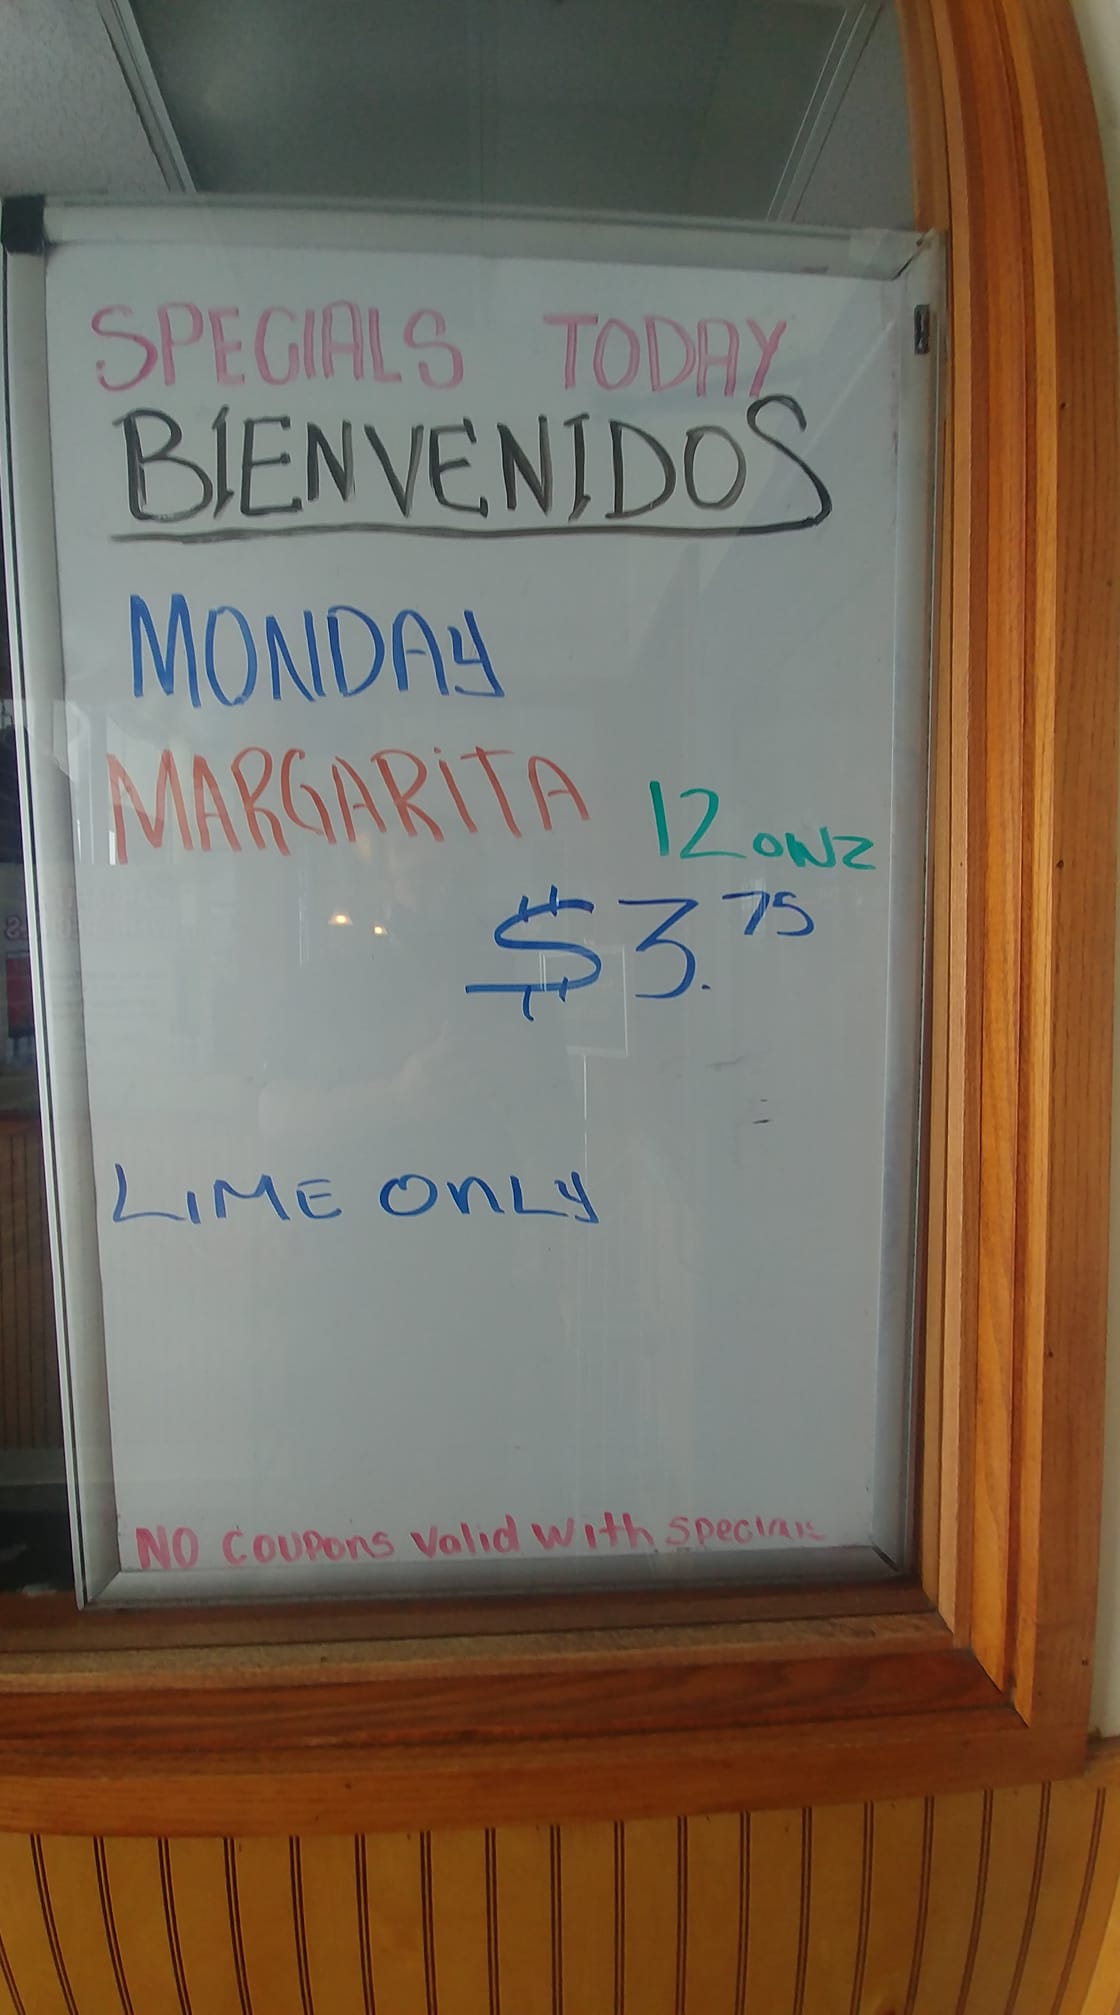 SPECIALS TODAY
BIENVENIDOS
MONDAY
MARGARITA 12 ONZ
$3.75
LIME ONLY
NO COUPONS Valid With Specials